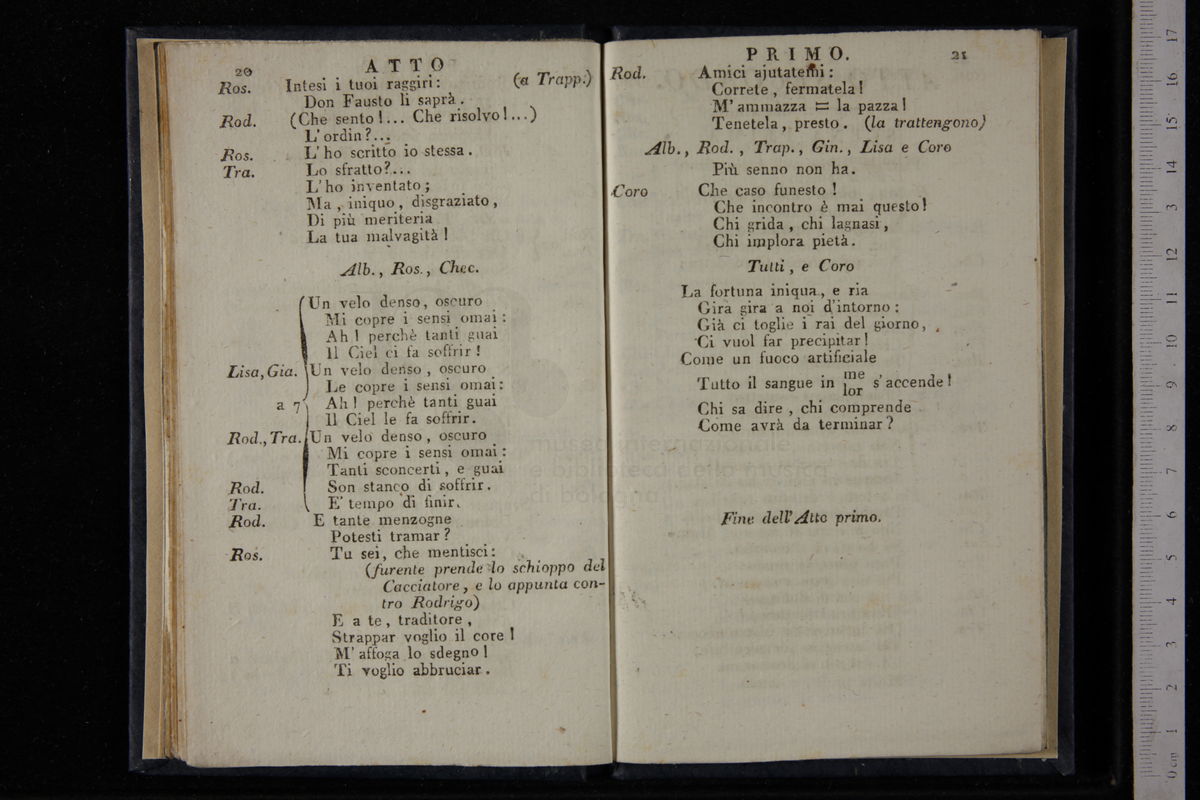 20
ATTO
Ros. Intesi i tuoi raggiri: (a Trapp.)
Don Fausto li saprà.
Rod. (Che sento!... Che risolvo!...)
L'ordin?...
Ros. L'ho scritto io stessa.
Tra. Lo sfratto?...
L'ho inventato;
Ma, iniquo, disgraziato,
Di più meriteria
La tua malvagità!
Alb., Ros., Chec.
Un velo denso, oscuro
Mi copre i sensi omai:
Ah! perchè tanti guai
Il Ciel ci fa soffrir!
Lisa, Gia. Un velo denso, oscuro
Le copre i sensi omai:
a 7 Ah! perchè tanti guai
Il Ciel le fa soffrir.
Rod., Tra. Un velo denso, oscuro
Mi copre i sensi omai:
Tanti sconcerti, e guai
Rod. Son stanco di soffrir.
Tra. E' tempo di finir.
Rod. E tante menzogne
Potesti tramar?
Ros. Tu sei, che mentisci:
(furente prende lo schioppo del
Cacciatore, e lo appunta con-
tro Rodrigo)
E a te, traditore,
Strappar voglio il core!
M'affoga lo sdegno!
Ti voglio abbruciar.
PRIMO.
21
Rod. Amici ajutatemi:
Correte, fermatela!
M'ammazza = la pazza!
Tenetela, presto. (la trattengono)
Alb., Rod., Trap., Gin., Lisa e Coro
Più senno non ha.
Coro Che caso funesto!
Che incontro è mai questo!
Chi grida, chi lagnasi,
Chi implora pietà.
Tutti, e Coro
La fortuna iniqua, e ria
Gira gira a noi d'intorno:
Già ci toglie i rai del giorno,
Ci vuol far precipitar!
Come un fuoco artificiale
Tutto il sangue in me s'accende!
lor
Chi sa dire, chi comprende
Come avrà da terminar?
Fine dell'Atto primo.
museo internazionale
e biblioteca della musica
di bologna
0 cm 1 2 3 4 5 6 7 8 9 10 11 12 13 14 15 16 17